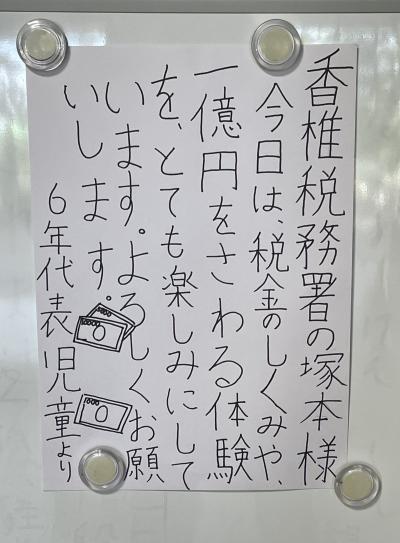 香椎税務署の塚本様
今日は、税金のしくみや、
一億円をさわる体験
を、とても楽しみにして
います。よろしくお願
いします。
6年代表児童より